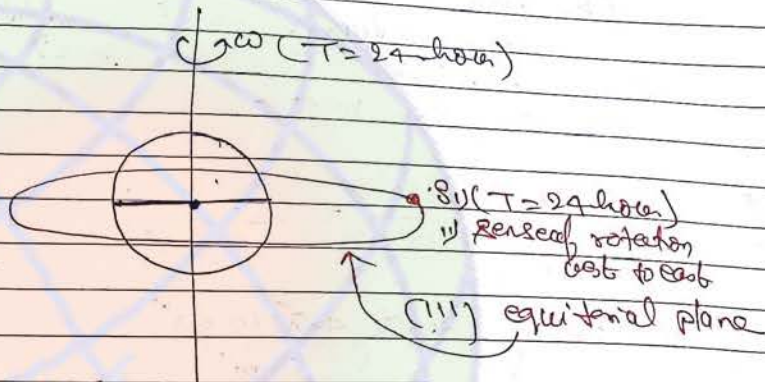 ω (T = 24 hour)
S i) (T = 24 hour)
ii) sense of rotation
west to east
(iii) equiterial plane